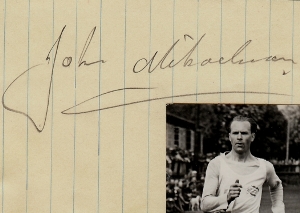 John Mikaelsson